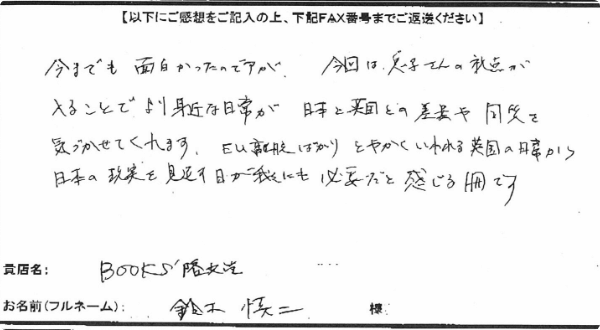 【以下にご感想をご記入の上、下記FAX番号までご返送ください】
今までも 面白かったのですが、今回は 息子さんの視点が
入ることで より身近な日常が 日本と英国との差異や 同質を
気づかせてくれます。EU離脱ばかり とやかくいわれる英国の日常から
日本の現実を見返す目が我々にも 必要だと 感じる 冊です
貴店名: BOOKS 隆文堂
お名前(フルネーム): 鈴木 慎二 様